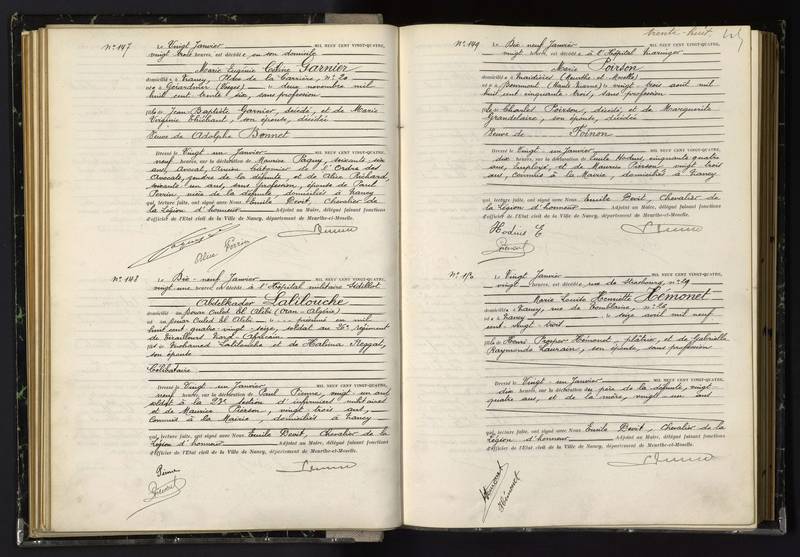 N° 147
Le Vingt Janvier MIL NEUF CENT VINGT-QUATRE,
vingt trois heures, est décédée en son domicile
Marie Eugénie Garnier
domiciliée à Nancy, de la Garrière, n° 20
née à Gérardmer (Vosges) le deux novembre mil
huit cent trente six, sans profession
fille de Jean Baptiste Garnier, décédé, et de Marie
Virginie, son épouse, décédée
Veuve de Adolphe Bonnet
Dressé le Vingt un Janvier MIL NEUF CENT VINGT-QUATRE,
neuf heures, sur la déclaration de Maurice, soixante six
ans, Avocat, Ancien Bâtonnier de l'Ordre des
Avocats, gendre de la défunte, et de Alice Richard,
soixante un ans, sans profession, épouse de Paul
nièce de la défunte, domiciliés à Nancy
qui, lecture faite, ont signé avec Nous Emile Devit, Chevalier de
la Légion d'honneur Adjoint au Maire, délégué faisant fonctions
d'officier de l'Etat civil de la Ville de Nancy, département de Meurthe-et-Moselle.
N° 148
Le Dix-neuf Janvier MIL NEUF CENT VINGT-QUATRE,
vingt une heures, est décédé à l'Hôpital militaire Sédillot
Abdelkader Lalilouche
domicilié au (Oran - Algérie)
né au le présumé en mil
huit cent quatre-vingt seize, soldat au régiment
de Tirailleurs Nord Africain
fils de Mohamed Lalilouche et de Halima
son épouse
Célibataire
Dressé le Vingt un Janvier MIL NEUF CENT VINGT-QUATRE,
neuf heures, sur la déclaration de Paul Pierre, vingt un ans
à la 23e section d'infirmiers militaires
et de Maurice Pierson, vingt trois ans,
Commis à la Mairie, domiciliés à Nancy
qui, lecture faite, ont signé avec Nous Emile Devit, Chevalier de la
Légion d'honneur Adjoint au Maire, délégué faisant fonctions
d'officier de l'Etat civil de la Ville de Nancy, département de Meurthe-et-Moselle.
Pierre
trente-huit
N° 149
Le Dix neuf Janvier MIL NEUF CENT VINGT-QUATRE,
vingt heures, est décédée à l'Hôpital Maringer
Marie Poirson
domiciliée à Maidières (Meurthe et Moselle)
née à Beaumont (Haute Marne) le vingt-trois août mil
huit cent cinquante-trois, sans profession
fille de Charles Poirson, décédé, et de Marguerite
Grandclaire, son épouse, décédée
Veuve de Toinon
Dressé le Vingt-un Janvier MIL NEUF CENT VINGT-QUATRE,
dix heures, sur la déclaration de Emile Hodius, cinquante quatre
ans, employé, et de Maurice Pierson, vingt trois
ans, Commis à la Mairie, domiciliés à Nancy
qui, lecture faite, ont signé avec Nous Emile Devit, Chevalier de
la Légion d'honneur Adjoint au Maire, délégué faisant fonctions
d'officier de l'Etat civil de la Ville de Nancy, département de Meurthe-et-Moselle.
Hodius E
N° 150
Le Vingt Janvier MIL NEUF CENT VINGT-QUATRE,
vingt heures, est décédée, rue de Strasbourg, n° 29
Marie Louise Henriette Hémonet
domiciliée à Nancy, rue de Tomblaine, n° 26
née à Nancy le seize avril mil neuf
cent vingt-trois
fille de Henri Prosper Hémonet, plâtrier, et de Gabrielle
Raymonde Laurain, son épouse, sans profession
Dressé le Vingt-un Janvier MIL NEUF CENT VINGT-QUATRE,
dix heures, sur la déclaration du père de la défunte, vingt
quatre ans, et de la mère, vingt-un ans
qui, lecture faite, ont signé avec Nous Emile Devit, Chevalier de la
Légion d'honneur Adjoint au Maire, délégué faisant fonctions
d'officier de l'Etat civil de la Ville de Nancy, département de Meurthe-et-Moselle.
Hémonet
Hémonet